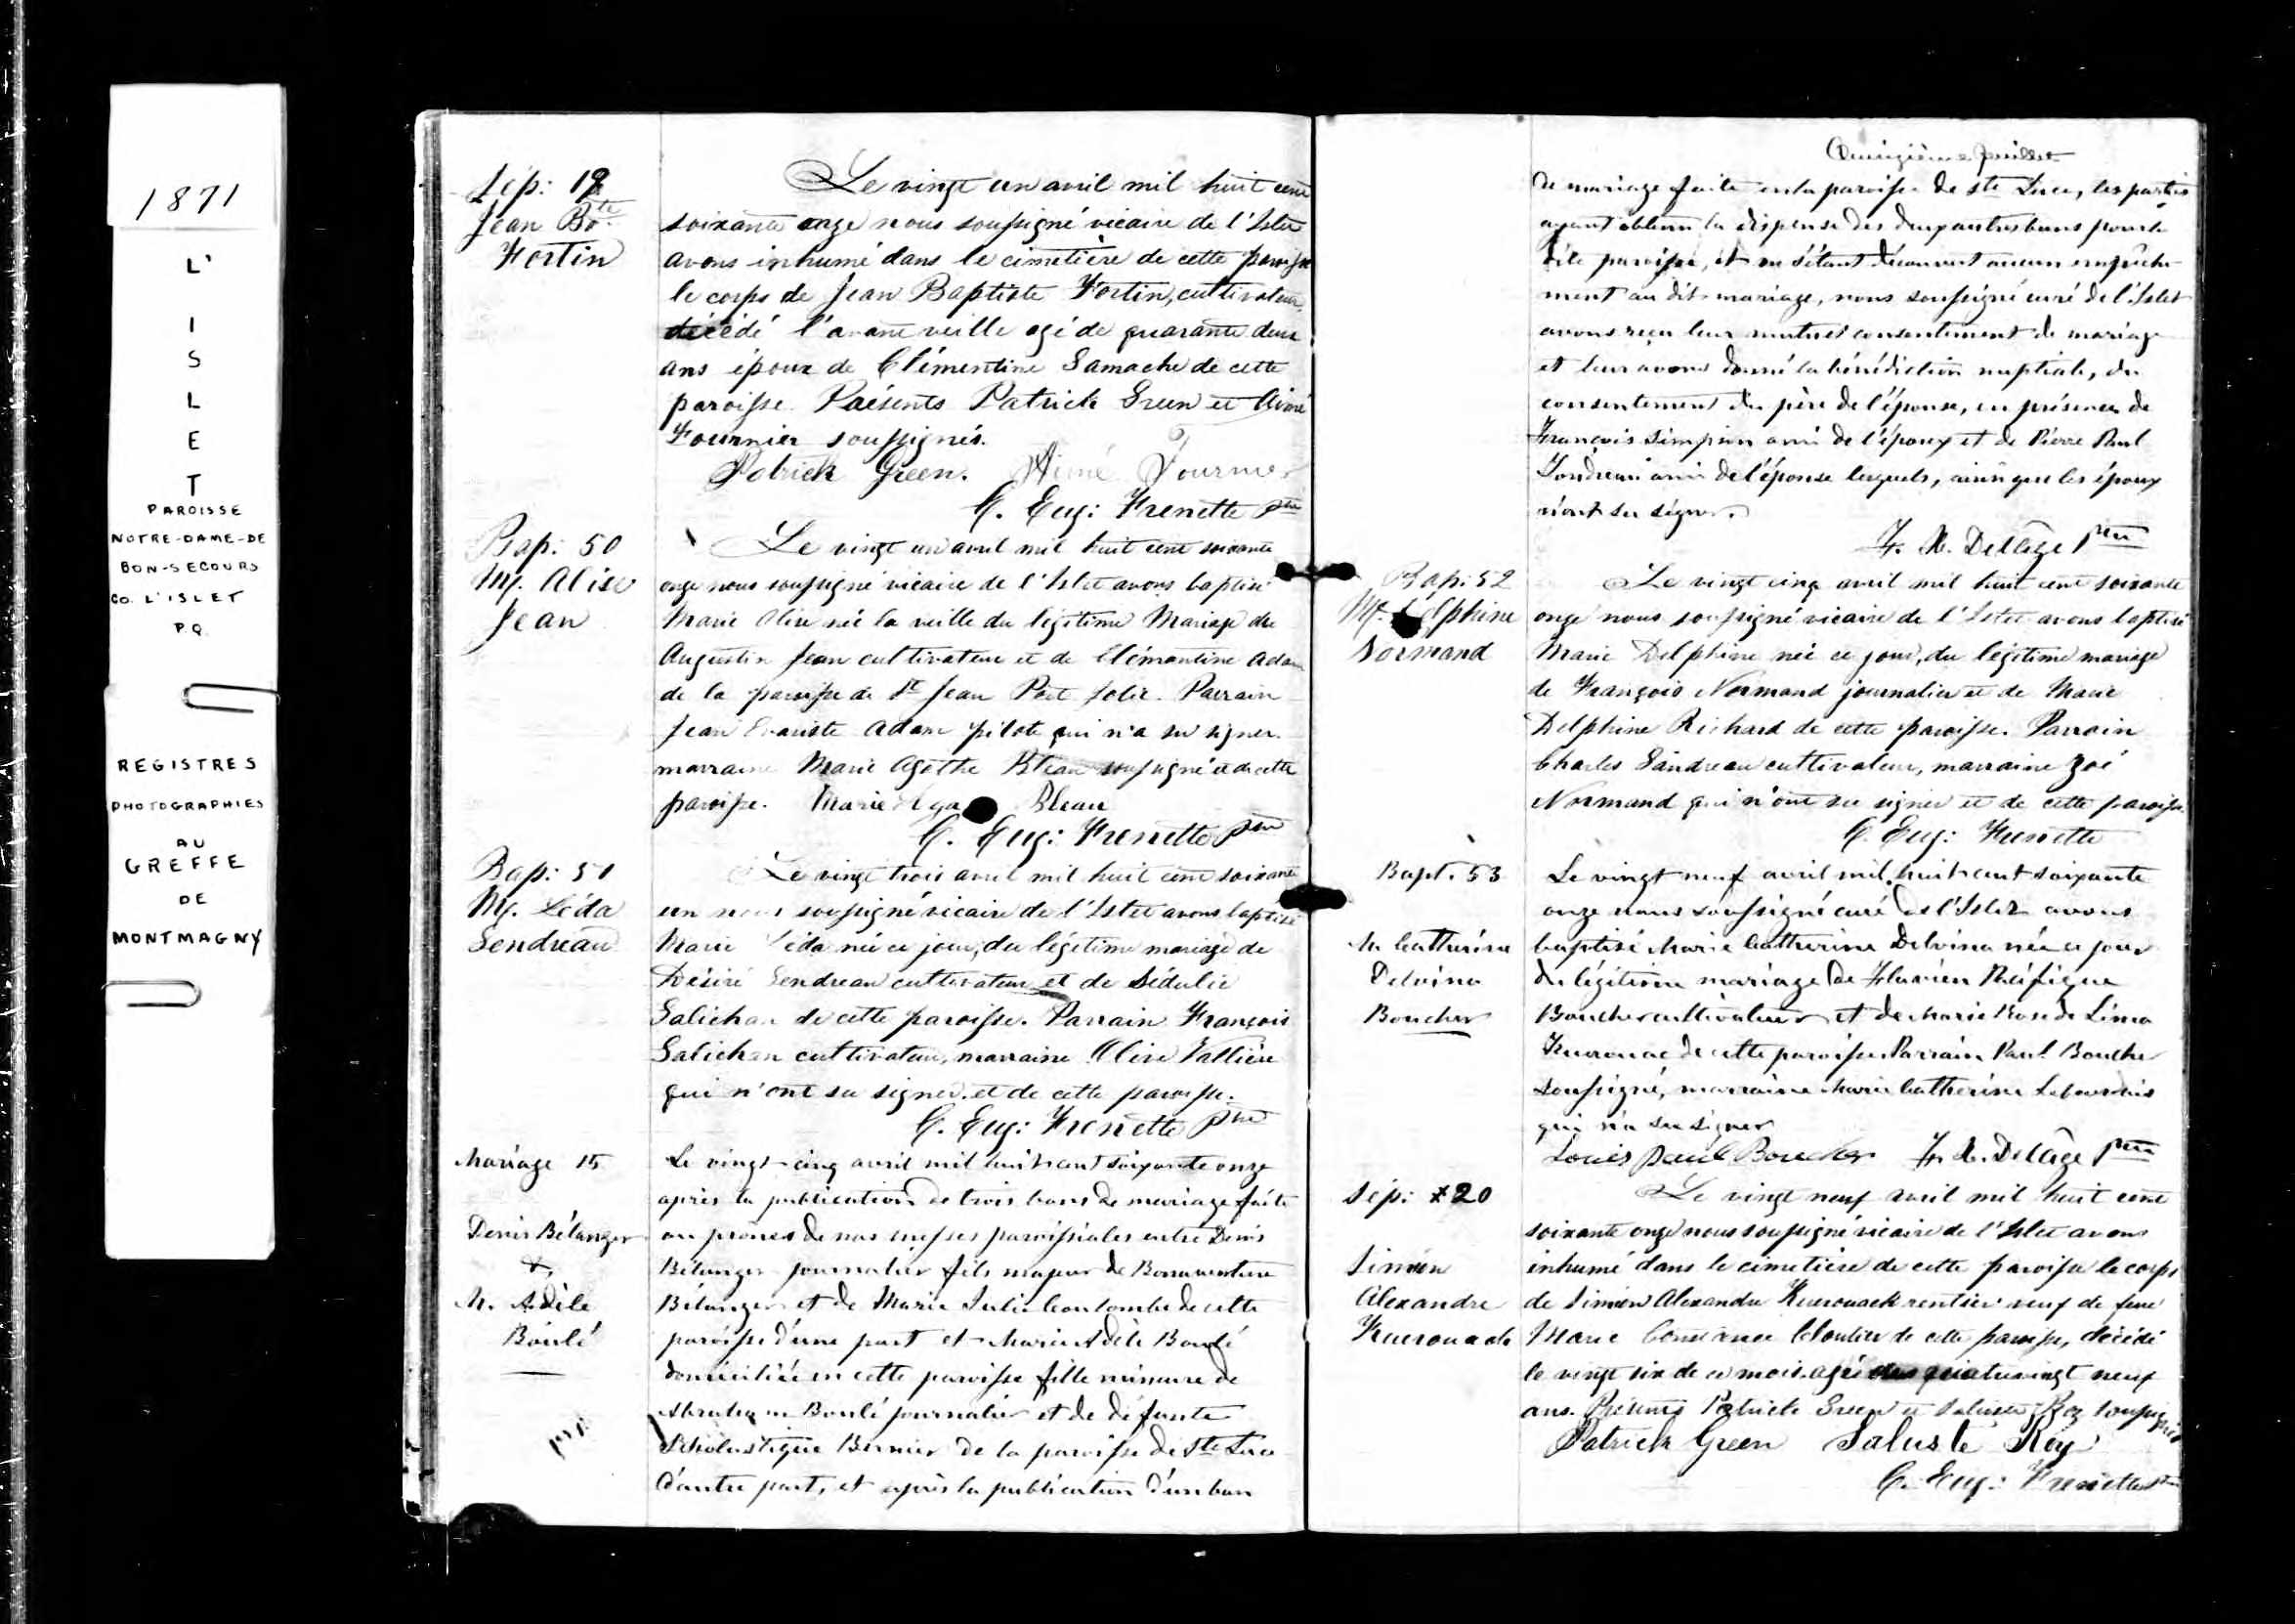 1871
L'
I
S
L
E
T
PAROISSE
NOTRE-DAME-DE
BON-SECOURS
CO. L'ISLET
P.Q.
REGISTRES
PHOTOGRAPHIES
AU
GREFFE
DE
MONTMAGNY
Sép: 19
Jean Bte
Fortin
Le vingt un avril mil huit cent
soixante onze nous soussigné vicaire de l'Islet
avons inhumé dans le cimetière de cette paroisse
le corps de Jean Baptiste Fortin, cultivateur,
décédé l'avant veille agé de quarante deux
ans époux de Clémentine Gamache de cette
paroisse. Présents Patrick Green et Aimé
Fournier soussignés.
Patrick Green. Aimé Fournier
C. Eug: Frenette Ptre
Bap: 50
M. Alise
Jean
Le vingt un avril mil huit cent soixante
onze nous soussigné vicaire de l'Islet avons baptisé
Marie Alise née la veille du légitime Mariage de
Augustin Jean cultivateur et de Clémentine Adam
de la paroisse de St Jean Port Joli. Parrain
Jean Evariste Adam pilote qui n'a su signer
marraine Marie Agathe Bleau soussigné et de cette
paroisse. Marie Aga Bleau
C. Eug: Frenette Ptre
Bap: 51
M. Léda
Gendreau
Le vingt trois avril mil huit cent soixante
un nous soussigné vicaire de l'Islet avons baptisé
Marie Léda née ce jour, du légitime mariage de
Désiré Gendreau cultivateur et de Sédulie
Galichan de cette paroisse. Parrain François
Galichan cultivateur, marraine Olive Vallière
qui n'ont su signer et de cette paroisse.
C. Eug: Frenette Ptre
Mariage 15
Denis Bélanger
&
M. Adèle
Boulé
Le vingt-cinq avril mil huit cent soixante onze
après la publication de trois bans de mariage faite
au prônes de nos messes paroissiales entre Denis
Bélanger journalier fils majeur de Bonaventure
Bélanger et de Marie Julie Coulombe de cette
paroisse d'une part et Marie Adèle Boulé
domiciliée en cette paroisse fille mineure de
Abraham Boulé journalier et de défunte
Scholastique Bernier de la paroisse de Ste Luce
d'autre part, et après la publication d'un ban
Quinzième feuillet
de mariage faite en la paroisse de Ste Luce, les parties
ayant obtenu la dispense des deux autres bans pour la
dite paroisse, et ne s'étant découvert aucun empêche-
ment au dit mariage, nous soussigné curé de l'Islet
avons reçu leur mutuel consentement de mariage
et leur avons donné la bénédiction nuptiale, du
consentement du père de l'épouse, en présence de
François Simpson ami de l'époux et de Pierre Paul
ami de l'épouse lesquels, ainsi que les époux
n'ont su signer.
F. X. Delâge Ptre
Bap: 52
M. Delphine
Normand
Le vingt cinq avril mil huit cent soixante
onze nous soussigné vicaire de l'Islet avons baptisé
Marie Delphine née ce jour, du légitime mariage
de François Normand journalier et de Marie
Delphine Richard de cette paroisse. Parrain
Charles Gendreau cultivateur, marraine Zoé
Normand qui n'ont su signer et de cette paroisse.
C. Eug: Frenette
Bapt. 53
M Catherine
Delvina
Boucher
Le vingt neuf avril mil huit cent soixante
onze nous soussigné curé de l'Islet avons
baptisé Marie Catherine Delvina née ce jour
du légitime mariage de Flavien Pacifique
Boucher cultivateur et de Marie Rose de Lima
Kuerouac de cette paroisse Parrain Paul Boucher
soussigné, marraine Marie Catherine Lebourdais
qui n'a su signer
Louis Paul Boucher F. X. Delâge Ptre
Sép: 20
Siméon
Alexandre
Kuerouack
Le vingt neuf avril mil huit cent
soixante onze nous soussigné vicaire de l'Islet avons
inhumé dans le cimetière de cette paroisse le corps
de Siméon Alexandre Kuerouack rentier veuf de feue
Marie Constance Cloutier de cette paroisse, décédé
le vingt six de ce mois agé de quatrevingt neuf
ans. Présents Patrick Green et Saluste Roy soussignés
Patrick Green Saluste Roy
C. Eug: Frenette Ptre